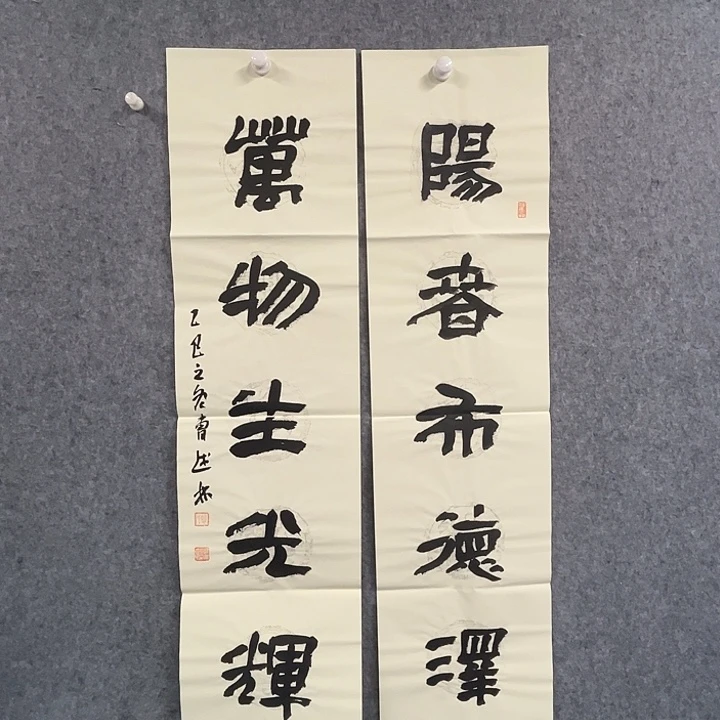 陽春布德澤
萬物生光輝
乙巳之冬曹述林